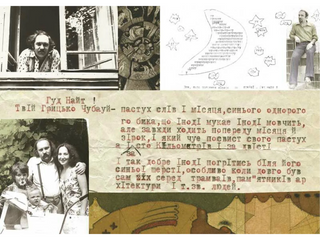 Гуд Найт !
Твій Грицько Чубауй- пастух слів і місяця,синього одноро
го бика,що Іноді мукае Іноді мовчить,
але завжди ходить попереду місяця й
зірок,І який чує посвист свого пастух
а І
за
І так добре Іноді погрітись біля його
синьої шерсті,особливо коли довго був
сам серед трамваїв,пам"ятників ар
хІтектури І т.зв. людей.